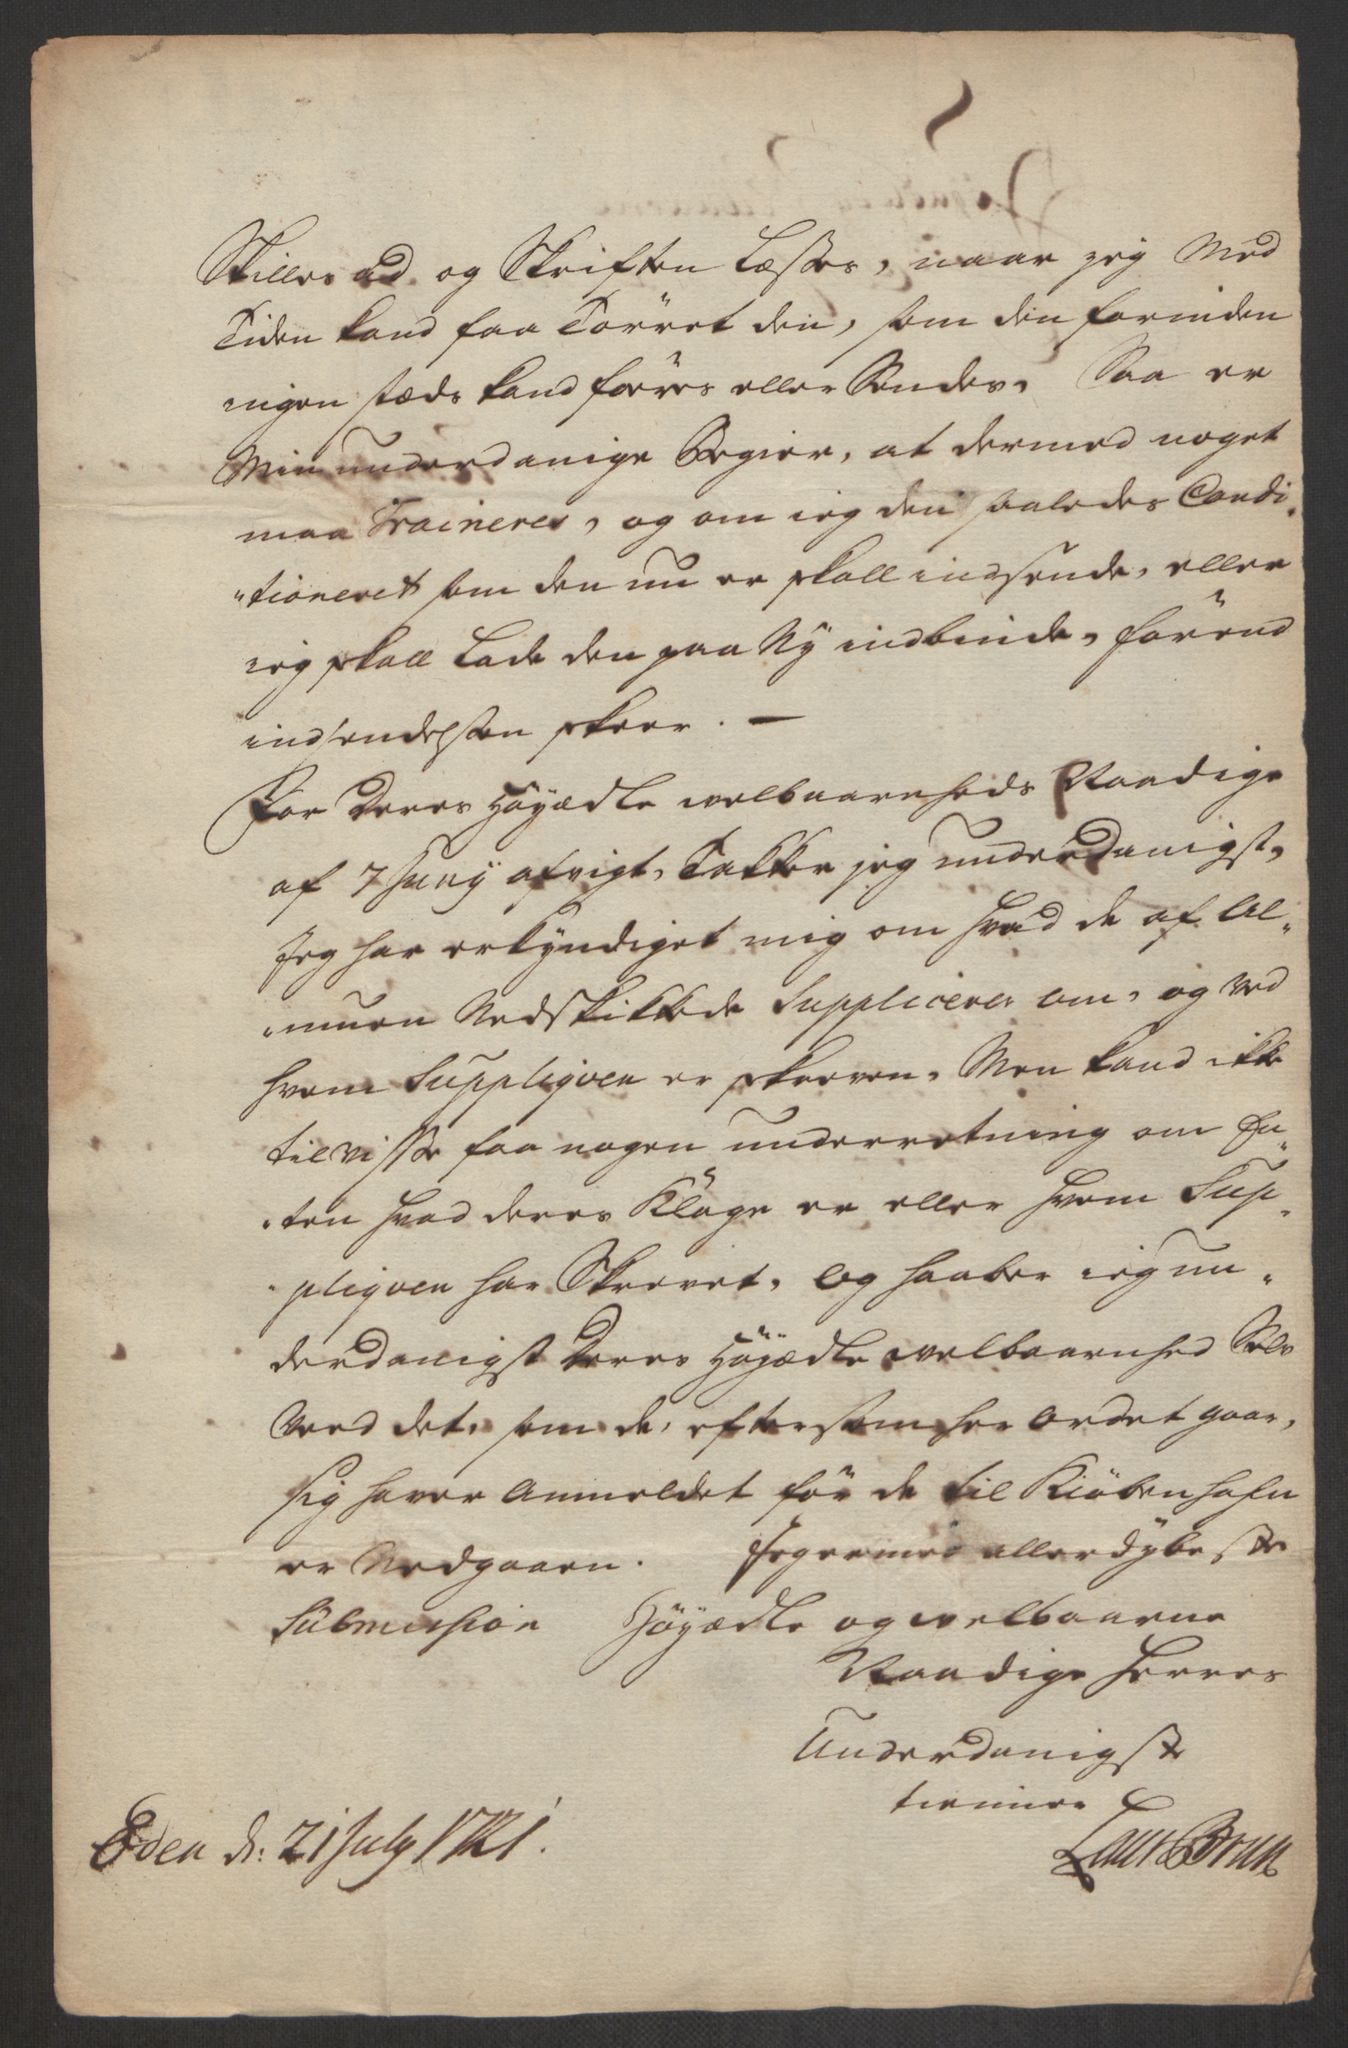 Skilles ad og Skriften Læsses, naar jeg Med
Tiden kand faa Törret den, som den forinden
ingen stæds kand föres eller Sendes. Saa er
Min underdanige Begier, at dermed noget
maa Traineres, og om ieg den saaledes Condi-
"tioneret som den nu er skall indsende, eller
ieg skall Lade den paa Ny indbinde, förend
indsendelssen skeer. —
For Deres Höyædle welbaarenheds Naadige
af 7 Juny afvigt, Takker jeg underdanigst,
Jeg har erkyndiget mig om hvad de af Al-
muen Nedskikkede Supplicerer om, og ved
hvem Suppliqven er skreven, Men kand ikke
til visse faa nogen underretning om En-
ten hvad deres Klage er eller hvem Sup-
pliqven har Skrevet, Og haaber ieg un-
derdanigst Deres Höyædle welbaarenhed Selv
veed det, som de, eftersom her Ordet gaar,
sig haver Anmeldet för de til Kiöbenhafn
er Nedgaaen. Jeg er med allerdybeste
Submission Höyædle og welbaarne
Naadige Herres
Underdanigste
tienner
Eden d: 21 July 1721. Laur Brun